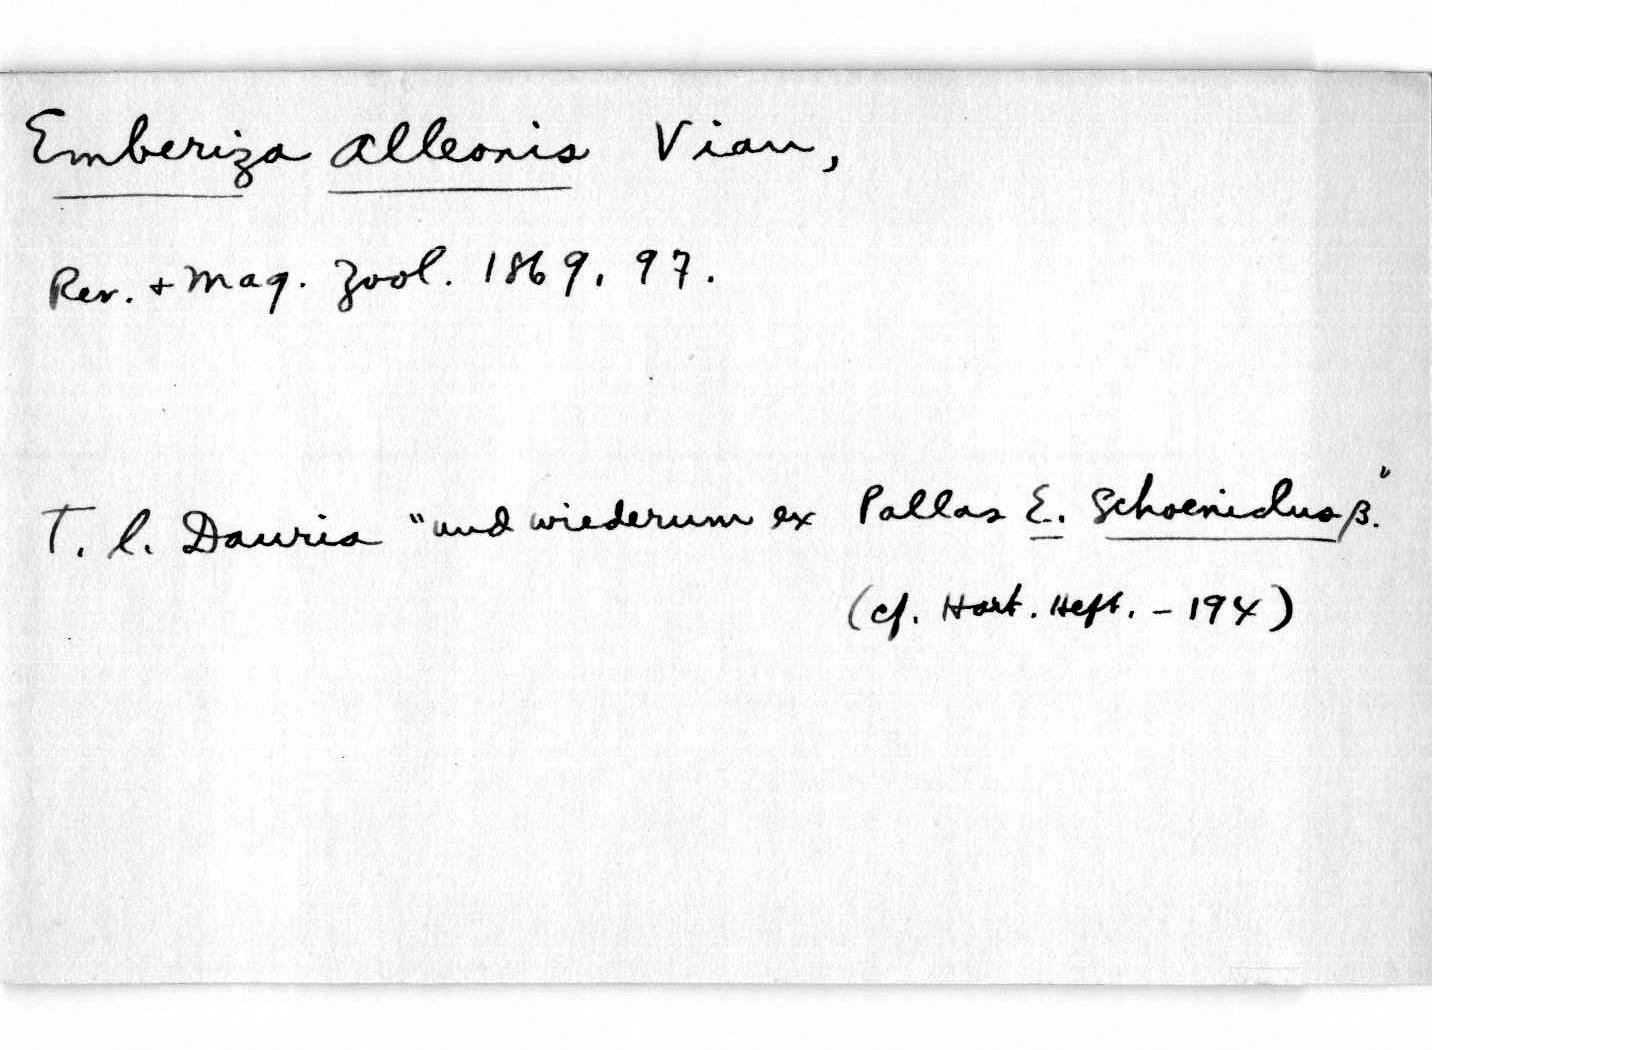 Emberiza alleonis Vian,
Rev. + Mag. Zool. 1869, 97.
T. l. Dauria "und wiederum ex Pallas E. Schoeniclus β."
(cf. Hart. Heft. - 194)